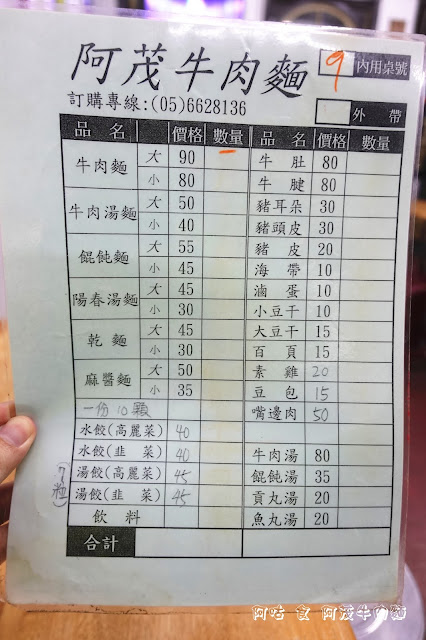 阿茂牛肉麵 9 內用桌號
訂購專線:(05)6628136 外 帶
品 名 價格 數量 品 名 價格 數量
牛肉麵 大 90 牛 肚 80
小 80 牛 腱 80
牛肉湯麵 大 50 豬耳朵 30
小 40 豬頭皮 30
餛飩麵 大 55 豬 皮 20
小 45 海 帶 10
陽春湯麵 大 45 滷 蛋 10
小 30 小豆干 10
乾 麵 大 45 大豆干 15
小 30 百 頁 15
麻醬麵 大 50 素 雞 20
小 35 豆 包 15
一份10顆 嘴邊肉 50
水餃(高麗菜) 40
水餃(韭 菜) 40 牛肉湯 80
湯餃(高麗菜) 45 餛飩湯 35
湯餃(韭 菜) 45 貢丸湯 20
飲 料 魚丸湯 20
合計
阿咕 食 阿茂牛肉麵